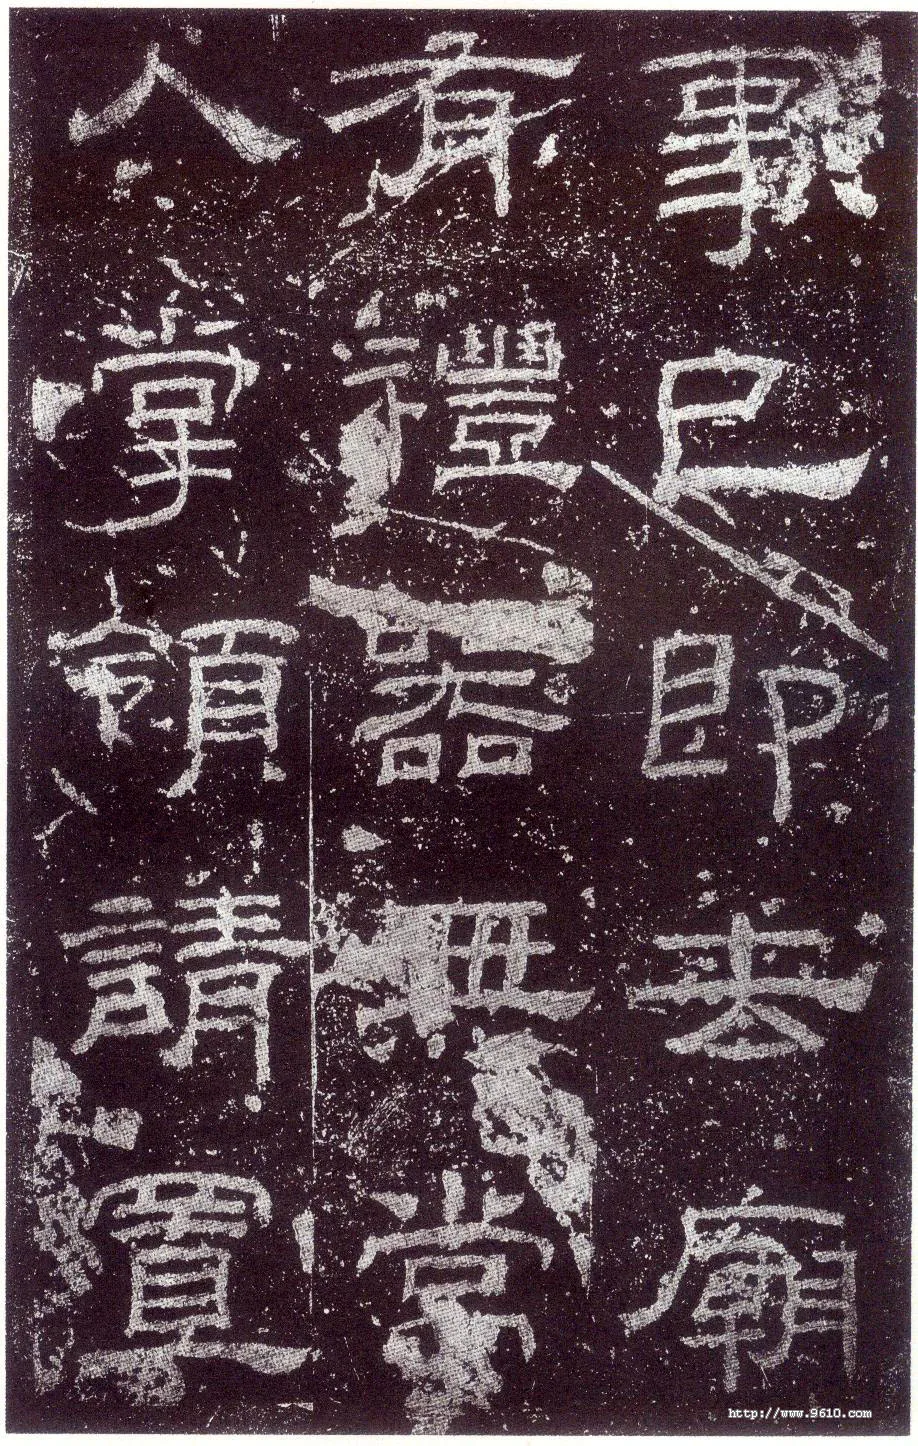 事已即去廟
有禮器無常
人掌領請置
http://www.9610.com